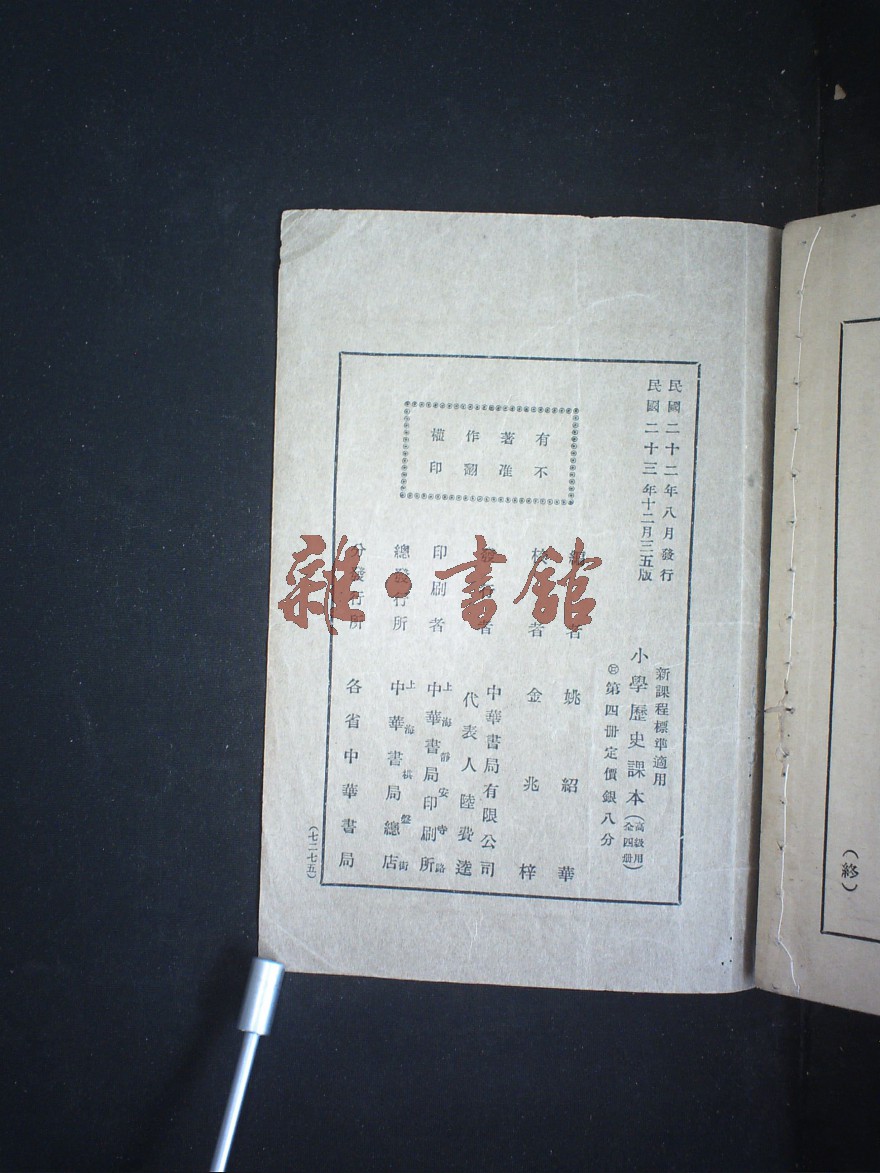 民國二十二年八月發行
民國二十三年十二月三五版
新課程標準適用
小學歷史課本（高級用全四冊）
第四冊定價銀八分
有著作權
不准翻印
編者 姚紹華
校者 金兆梓
發行者 中華書局有限公司
代表人陸費逵
印刷者 上海靜安寺路
中華書局印刷所
總發行所 上海棋盤街
中華書局總店
分發行所 各省中華書局
（七二七五）
（終）
雜·書館